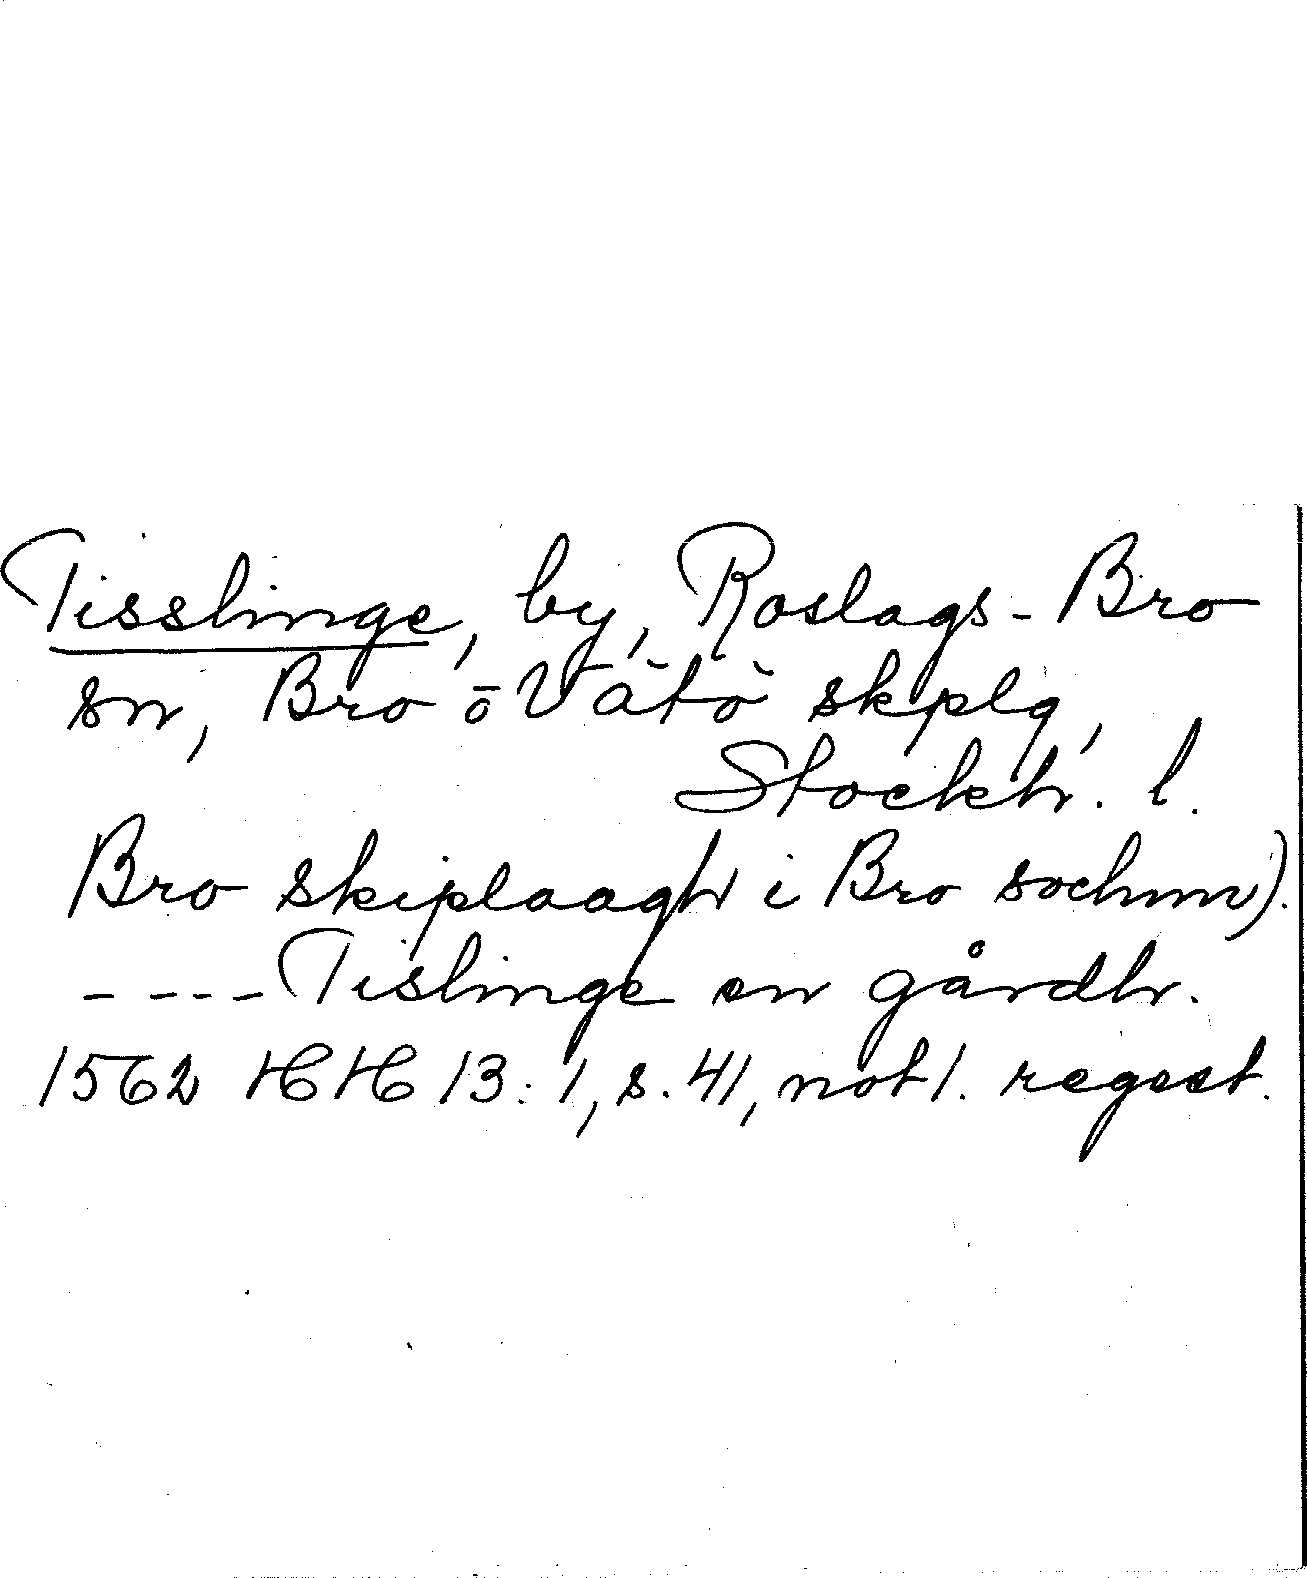 Tisslinge, by, Roslags-Bro
sn, Bro o Vätö skplg,
Stockh. l.
Bro skiplaagh i Bro sochnn).
---- Tislinge en gårdh.
1562 HH 13:1, s. 41, not 1. regest.